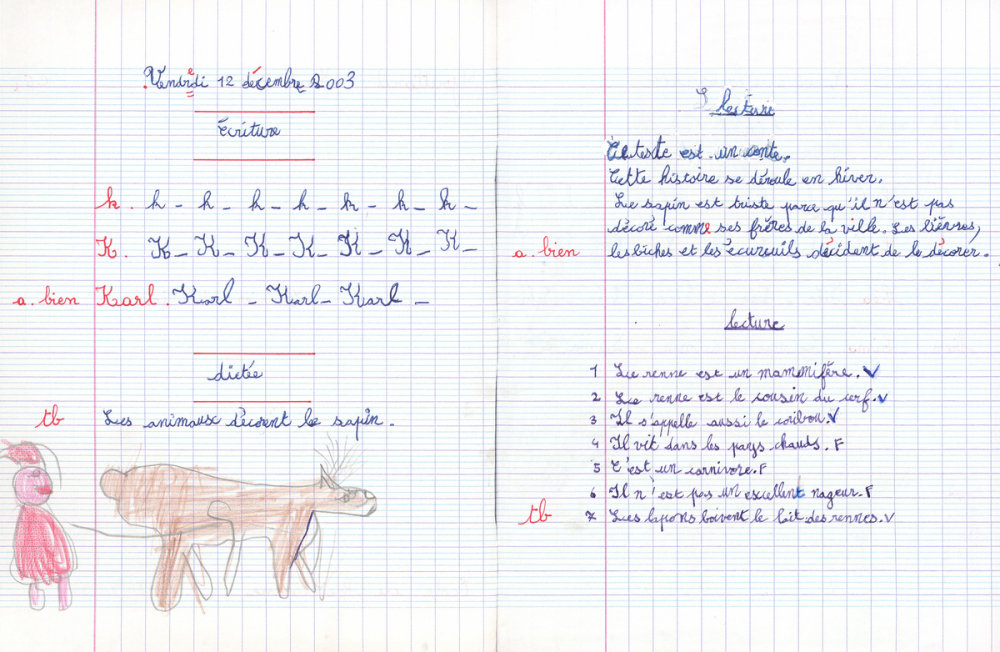 Vendredi 12 décembre 2003
écriture
k. k - k - k - k - k - k - k -
K. K - K - K - K - K - K - K -
a. bien Karl. Karl - Karl - Karl -
dictée
tb Les animaux décorent le sapin.
lecture
texte est un conte.
Cette histoire se déroule en hiver.
Le sapin est triste parce qu'il n'est pas
décoré comme ses frères de la ville. Les lièvres,
a. bien les biches et les écureuils décident de le décorer.
lecture
1 Le renne est un mammifère. V
2 Le renne est le cousin du cerf. V
3 Il s'appelle aussi le caribou. V
4 Il vit dans les pays chauds. F
5 C'est un carnivore. F
6 Il n'est pas un excellent nageur. F
tb 7 Les lapons boivent le lait des rennes. V